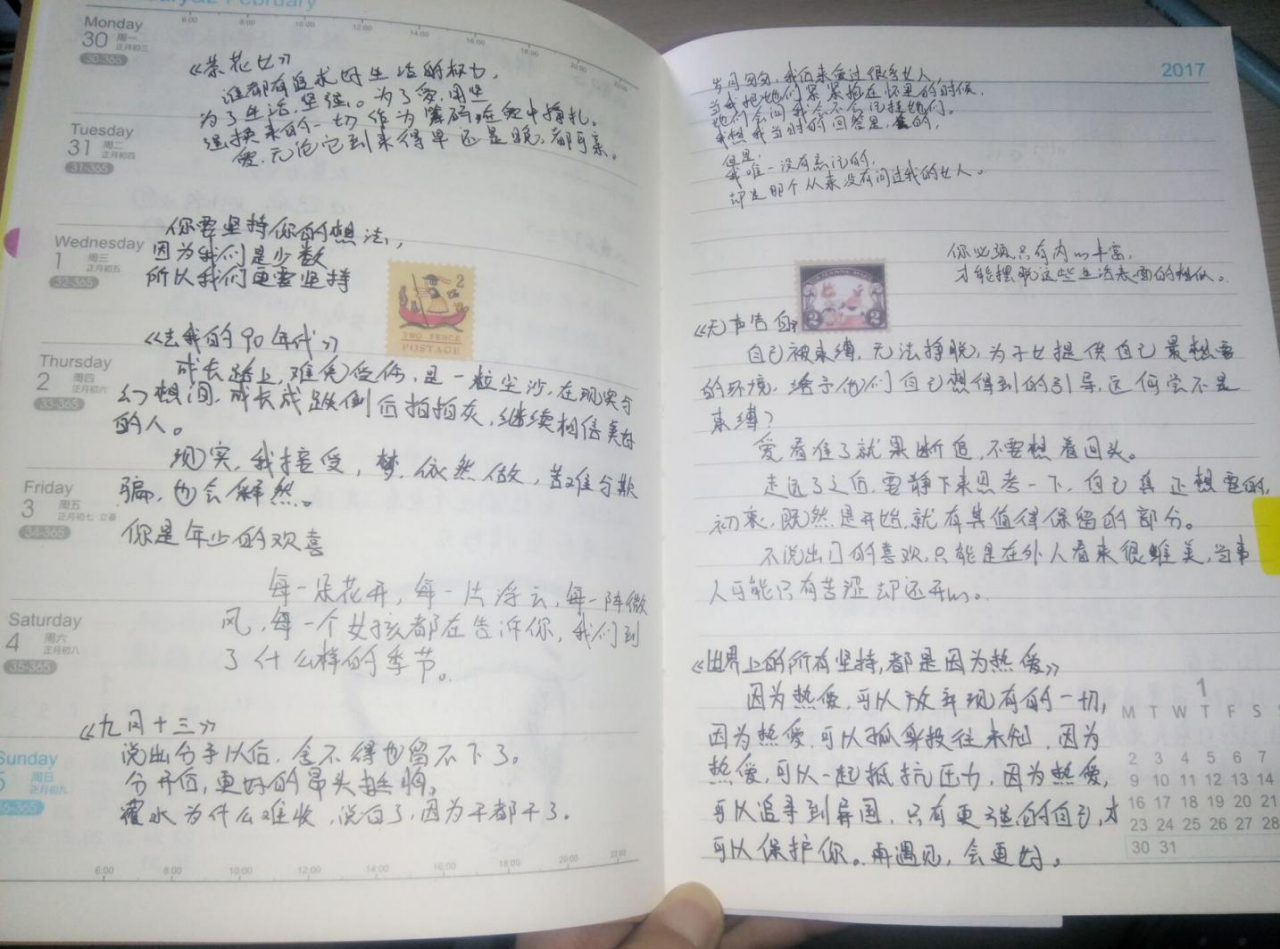 February
Monday
30 周一
正月初三
30-365
6:00 8:00 10:00 12:00 14:00 16:00 18:00 20:00
《茶花女》
谁都有追求好生活的权力，
为了生活，坚强。为了爱，用坚
强换来的一切作为筹码在爱中挣扎。
爱，无论它到来得早还是晚，都可亲。
Tuesday
31 周二
正月初四
31-365
你要坚持你的想法，
因为我们是少数
所以我们更要坚持
Wednesday
1 周三
正月初五
32-365
2
TWO PENCE
POSTAGE
《去我的90年代》
Thursday
2 周四
正月初六
33-365
成长路上，难免受伤，是一粒尘沙，在现实与
幻想间，成长成跌倒后拍拍灰，继续相信美好
的人。
现实，我接受，梦，依然做，苦难与欺
骗，也会释然。
Friday
3 周五
正月初七 立春
34-365
你是年少的欢喜
每一朵花开，每一片浮云，每一阵微
风，每一个女孩都在告诉你，我们到
了什么样的季节。
Saturday
4 周六
正月初八
35-365
《九月十三》
说出分手以后，舍不得也留不下了。
分开后，更好的昂头挺胸。
覆水为什么难收，说白了，因为干都干了。
Sunday
5 周日
正月初九
36-365
6:00 8:00 10:00 12:00 14:00 16:00 18:00 20:00 22:00
2017
岁月匆匆，我后来爱过很多女人，
当我把她们紧紧抱在怀里的时候，
她们会问我会不会记挂她们。
我想我当时的回答是，会的，
但是，
我唯一没有忘记的，
却是那个从来没有问过我的女人。
你必须只有内心丰富，
才能摆脱这些生活表面的相似。
2 2
《无声告白》
自己被束缚，无法挣脱，为子女提供自己最想要
的环境，给予他们自己想得到的引导，这何尝不是
束缚？
爱看准了就果断追，不要想着回头。
走远了之后，要静下来思考一下，自己真正想要的，
初衷，既然是开始，就有其值得保留的部分。
不说出口的喜欢，只能是在外人看来很唯美，当事
人可能只有苦涩却还开心。
《世界上的所有坚持，都是因为热爱》
因为热爱，可以放弃现有的一切，
因为热爱，可以孤身投往未知，因为
热爱，可以一起抵抗压力，因为热爱，
可以追寻到异国，只有更强的自己，才
可以保护你。再遇见，会更好。
1
M T W T F S
2 3 4 5 6 7
9 10 11 12 13 14
16 17 18 19 20 21
23 24 25 26 27 28
30 31